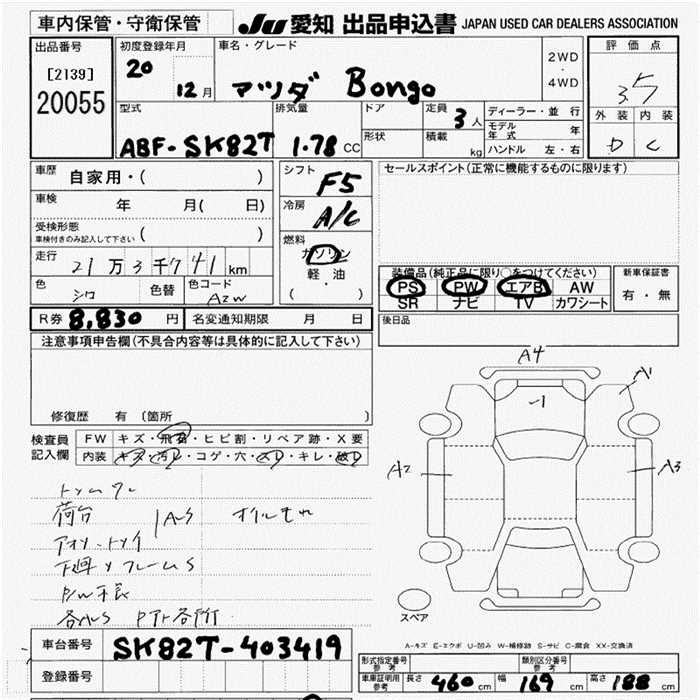 車内保管・守衛保管 JU 愛知 出品申込書 JAPAN USED CAR DEALERS ASSOCIATION
出品番号 初度登録年月 車名・グレード 2WD・4WD 評価点
[2139] 20 12月 マツダ Bongo 3.5
20055
型式 排気量 ドア 定員 3人 ディーラー・並行 外装 内装
ABF-SK82T 1.78 CC 形状 積載 kg モデル年式 年 D C
ハンドル 左・右
車歴 自家用・( )
シフト F5
セールスポイント(正常に機能するものに限ります)
車検 年 月( 日)
冷房 A/C
受検形態 ( )
車検付きのみ記入して下さい
燃料 ガソリン 軽油 ( )
走行 21万3千741km
色 シロ 色替 色コード A2W
装備品(純正品に限り○をつけてください) 新車保証書
PS PW エアB AW 有・無
SR ナビ TV カワシート
R券 8,830円 名変通知期限 月 日
後日品
注意事項申告欄(不具合内容等は具体的に記入して下さい)
修復歴 有 (箇所
検査員 FW キズ・飛石・ヒビ割・リペア跡・X要
記入欄 内装 キズ・汚レ・コゲ・穴・スレ・キレ・破レ
荷台
オイルモレ
下廻サフレームS
A4
A1
-1
A2
A3
スペア
A-キズ E-エクボ U-凹み W-補修跡 S-サビ C-腐食 XX-交換済
車台番号 SK82T-403419
登録番号
型式指定番号 参考 類別区分番号 参考
車庫証明用 参考 長さ 460cm 幅 169cm 高さ 188cm